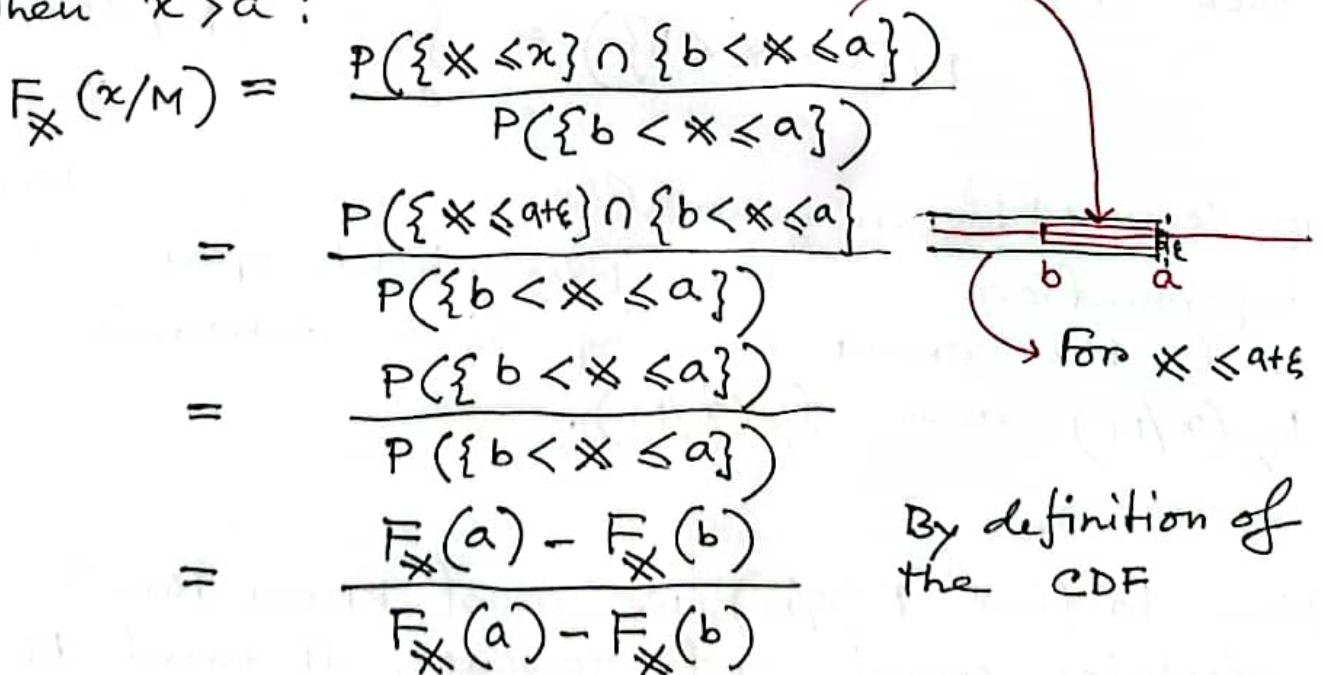 When x > a :
F_X (x/M) = P({X ≤ x} ∩ {b < X ≤ a}) / P({b < X ≤ a})
= P({X ≤ a+ε} ∩ {b < X ≤ a} / P({b < X ≤ a})
b a ε
For X ≤ a+ε
= P({b < X ≤ a}) / P({b < X ≤ a})
= F_X (a) - F_X (b) / F_X (a) - F_X (b)
By definition of
the CDF